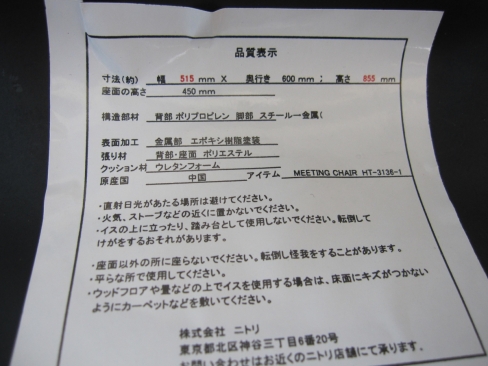 品質表示
寸法(約) 幅 515 mm X 奥行き 600 mm ; 高さ 855 mm
座面の高さ 450 mm
構造部材 背部 ポリプロピレン 脚部 スチール一金属(
表面加工 金属部 エポキシ樹脂塗装
張り材 背部・座面 ポリエステル
クッション材 ウレタンフォーム
原産国 中国 アイテム MEETING CHAIR HT-3136-1
・直射日光があたる場所は避けてください。
・火気、ストーブなどの近くに置かないでください。
・イスの上に立ったり、踏み台として使用しないでください。転倒して
けがをするおそれがあります。
・座面以外の所に座らないでください。転倒し怪我をすることがあります。
・平らな所で使用してください。
・ウッドフロアや畳などの上でイスを使用する場合は、床面にキズがつかない
ようにカーペットなどを敷いてください。
株式会社 ニトリ
東京都北区神谷三丁目6番20号
お問い合わせはお近くのニトリ店舗にて承ります。